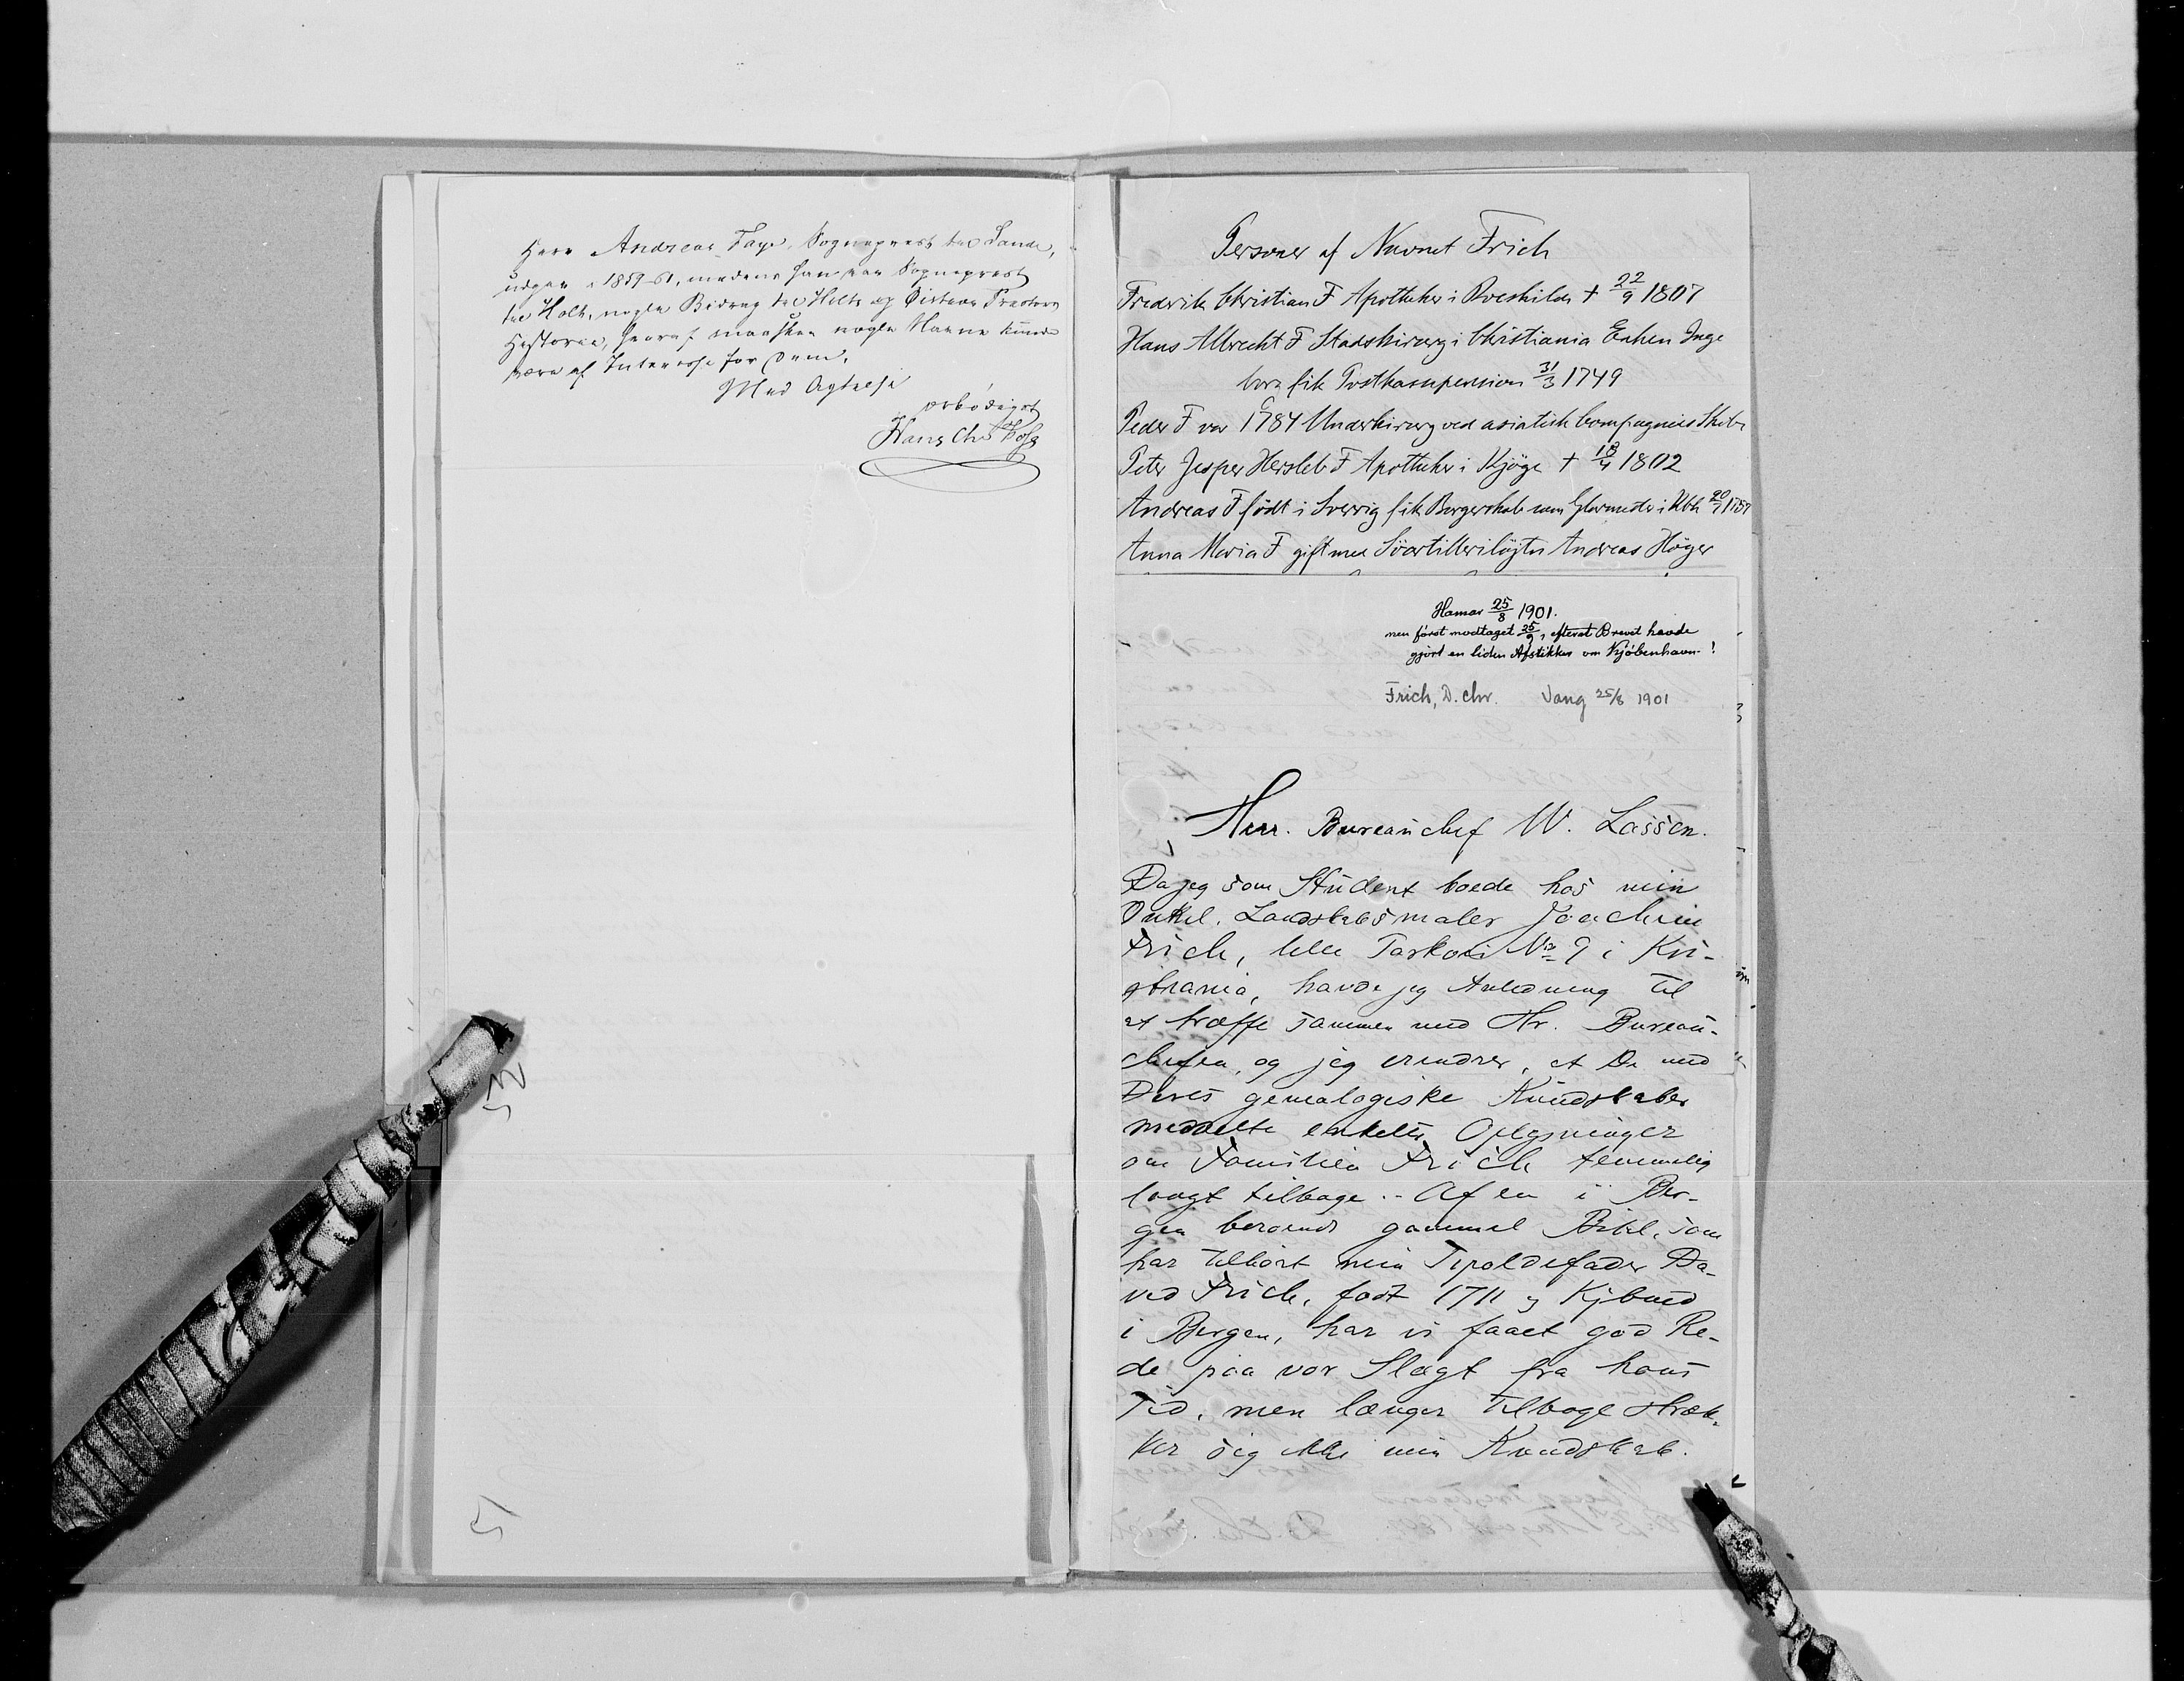 Herr Andreas Faye, Sogneprest til Sande,
udgav i 1859-61, medens han var Sogneprest
til Holt, nogle Bidrag til Holts og Præsters
Historie, hvoraf maaskee nogle Navne kunde
være af Interesse for Dem.
Med Agtelse
ærbødigst
Hans Chr
Personer af Navnet Frich
Frederik Christian F Apotheker i Roeskilde † 22/9 1807
Hans Albrecht F Stadskirurg i Christiania Enken Inge
borg fik Postkassepension 31/3 1749
Peder F var 1784 Underkirurg ved asiatisk Compagnies Skibe
Peter Jesper Hersleb F Apotheker i Kjöge † 18/4 1802
Andreas F födt i Sverrig fik Borgerskab som Glarmester i Kbh
Anna Maria F gift med Söartillerilöjtn Andreas Höyer
Hamar 25/8 1901.
men först modtaget 25/9, efterat Brevet havde
gjort en liden Afstikker om Kjöbenhavn!
Frich, D. chr. Vang 25/8 1901
Herr. Bureauchef W. Lassen.
Da jeg som Student boede hos min
Onkel, Landskabsmaler Joachim
Frich, lille No 9 i Kri-
stiania, havde jeg Anledning til
at træffe sammen med Hr. Bureau-
chefen, og jeg erindrer, at De med
Deres genealogiske Kundskaber
meddelte enkelte Oplysninger
om Familien Frich temmelig
langt tilbage. - Af en i Ber-
gen beroende gammel Bibel, som
har tilhört min Tipoldefader Da-
vid Frich, födt 1711 og Kjbmd
i Bergen, har vi faaet god Re-
de paa vor Slægt fra hans
Tid, men længer tilbage stræk-
ker sig ikke min Kundskab.
5